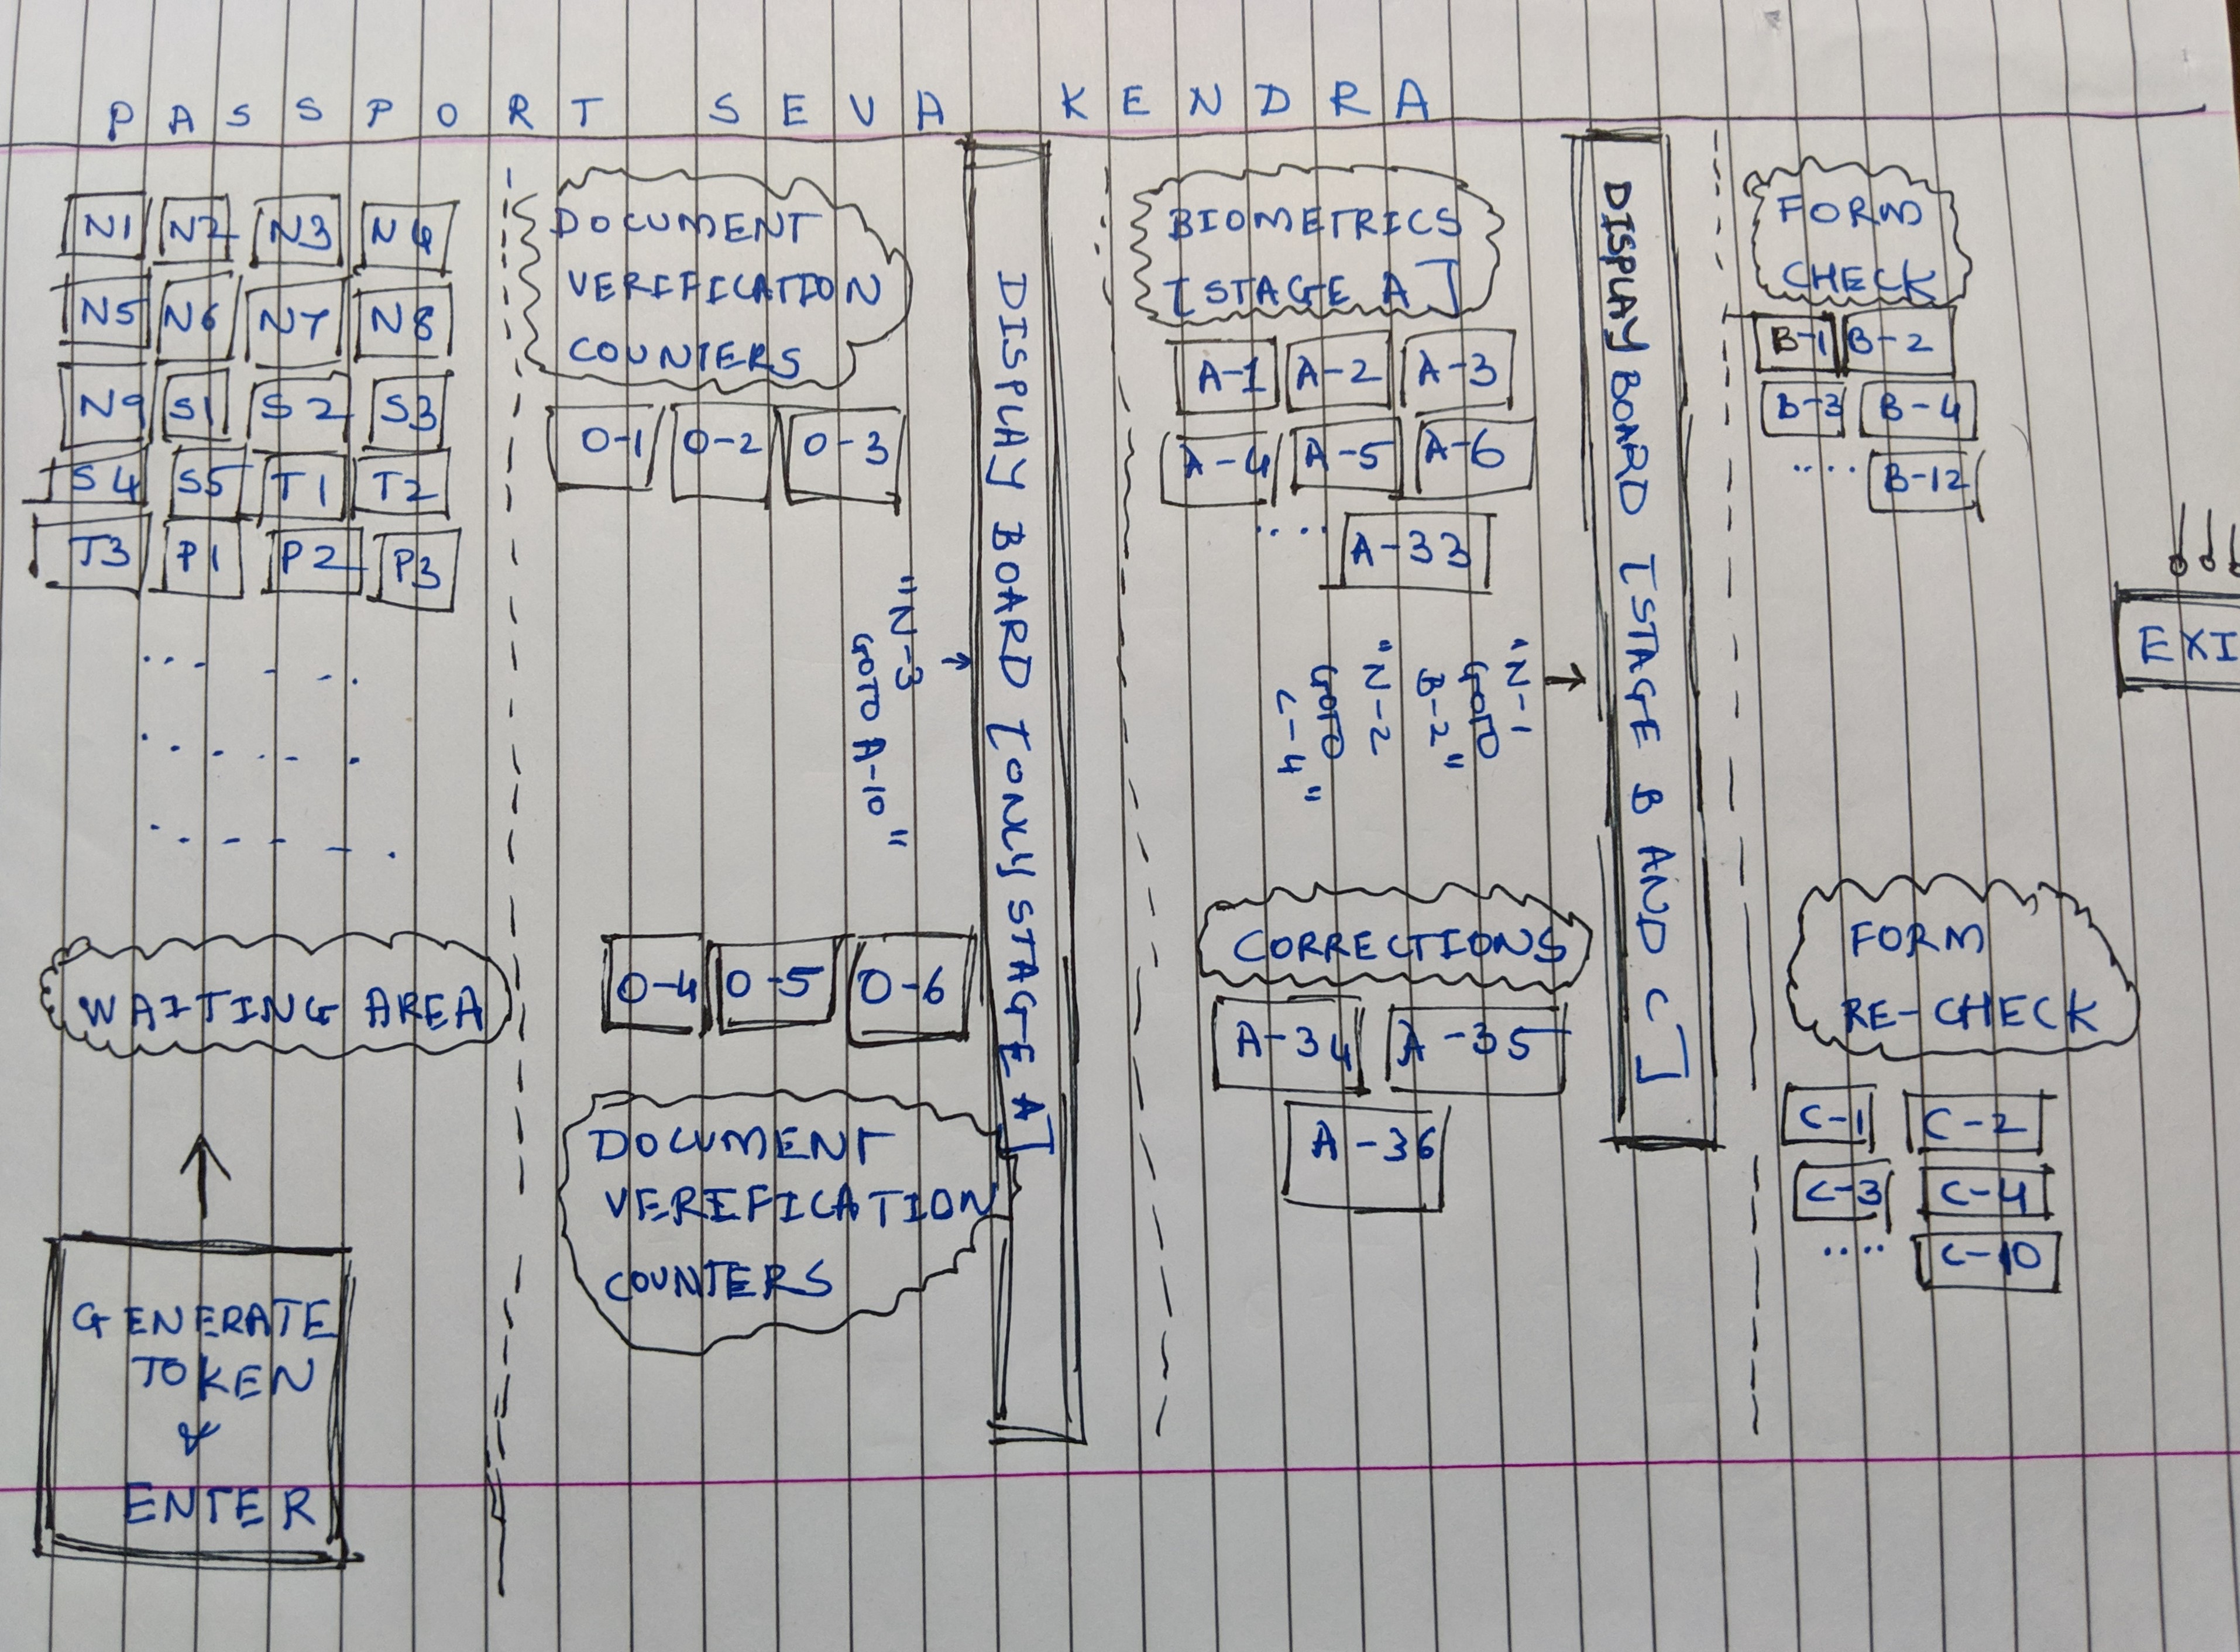 PASSPORT SEVA KENDRA
N1 N2 N3 N4
N5 N6 N7 N8
N9 S1 S2 S3
S4 S5 T1 T2
T3 P1 P2 P3
WAITING AREA
GENERATE
TOKEN
&
ENTER
DOCUMENT
VERIFICATION
COUNTERS
O-1 O-2 O-3
"N-3
GOTO A-10"
O-4 O-5 O-6
DOCUMENT
VERIFICATION
COUNTERS
DISPLAY BOARD [ONLY STAGE A]
BIOMETRICS
[STAGE A]
A-1 A-2 A-3
A-4 A-5 A-6
.... A-33
"N-1
GOTO
B-2"
"N-2
GOTO
C-4"
CORRECTIONS
A-34 A-35
A-36
DISPLAY BOARD [STAGE B AND C]
FORM
CHECK
B-1 B-2
B-3 B-4
.... B-12
FORM
RE-CHECK
C-1 C-2
C-3 C-4
.... C-10
EXI